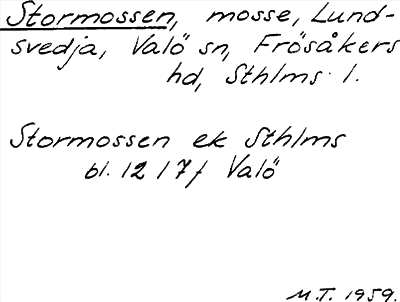 Stormossen, mosse, Lund-
svedja, Valö sn, Frösåkers
hd, Sthlms l.
Stormossen ek Sthlms
bl. 12 17f Valö
M.T. 1959.